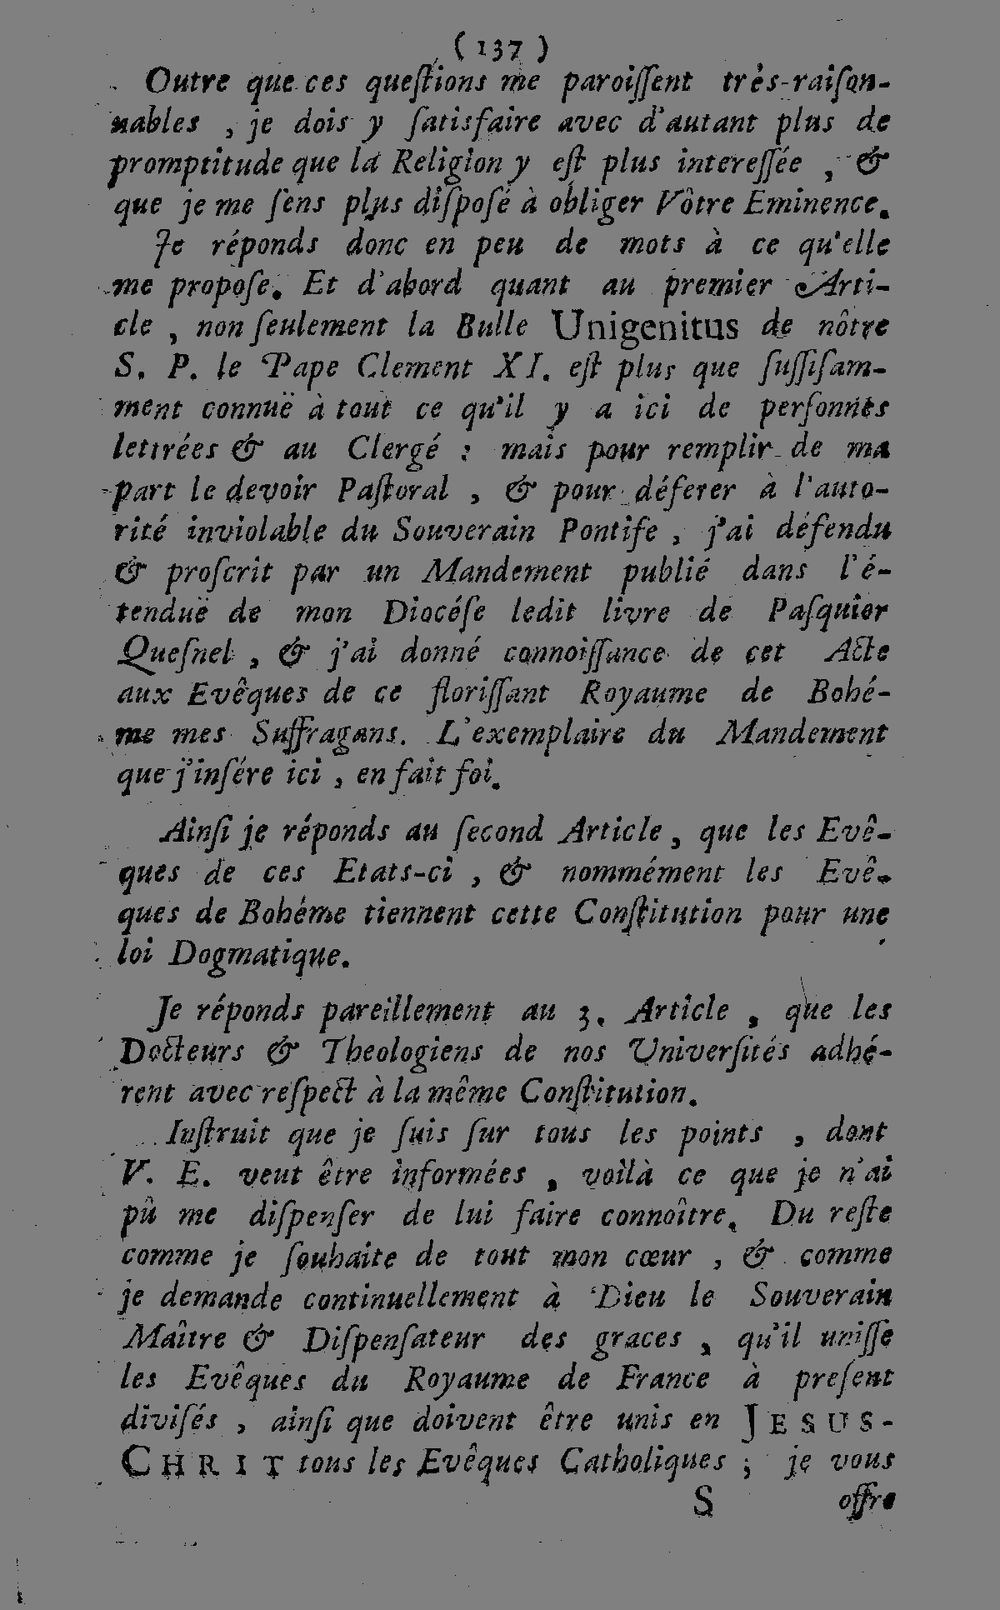 (137)
Outre que ces queſtions me paroiſſent très-raiſon-
nables , je dois y ſatisfaire avec d'autant plus de
promptitude que la Religion y eſt plus intereſſée , &
que je me ſens plus diſpoſé à obliger Vôtre Eminence.
Je réponds donc en peu de mots à ce qu'elle
me propoſe. Et d'abord quant au premier Arti-
cle , non ſeulement la Bulle Unigenitus de nôtre
S. P. le Pape Clement XI. eſt plus que ſuffiſam-
ment connuë à tout ce qu'il y a ici de perſonnes
lettrées & au Clergé : mais pour remplir de ma
part le devoir Paſtoral , & pour déferer à l'auto-
rité inviolable du Souverain Pontife , j'ai défendu
& proſcrit par un Mandement publié dans l'é-
tenduë de mon Diocéſe ledit livre de Paſquier
Queſnel , & j'ai donné connoiſſance de cet Acte
aux Evêques de ce floriſſant Royaume de Bohé-
me mes Suffragans. L'exemplaire du Mandement
que j'inſére ici , en fait foi.
Ainſi je réponds au ſecond Article , que les Evê-
ques de ces Etats-ci , & nommément les Evê-
ques de Bohéme tiennent cette Conſtitution pour une
loi Dogmatique.
Je réponds pareillement au 3. Article , que les
Docteurs & Theologiens de nos Univerſités adhé-
rent avec reſpect à la même Conſtitution.
Inſtruit que je ſuis ſur tous les points , dont
V. E. veut être informées , voilà ce que je n'ai
pû me diſpenſer de lui faire connoître. Du reſte
comme je ſouhaite de tout mon cœur , & comme
je demande continuellement à Dieu le Souverain
Maître & Diſpenſateur des graces , qu'il uniſſe
les Evêques du Royaume de France à preſent
diviſés , ainſi que doivent être unis en JESUS-
CHRIT tous les Evêques Catholiques ; je vous
S offre